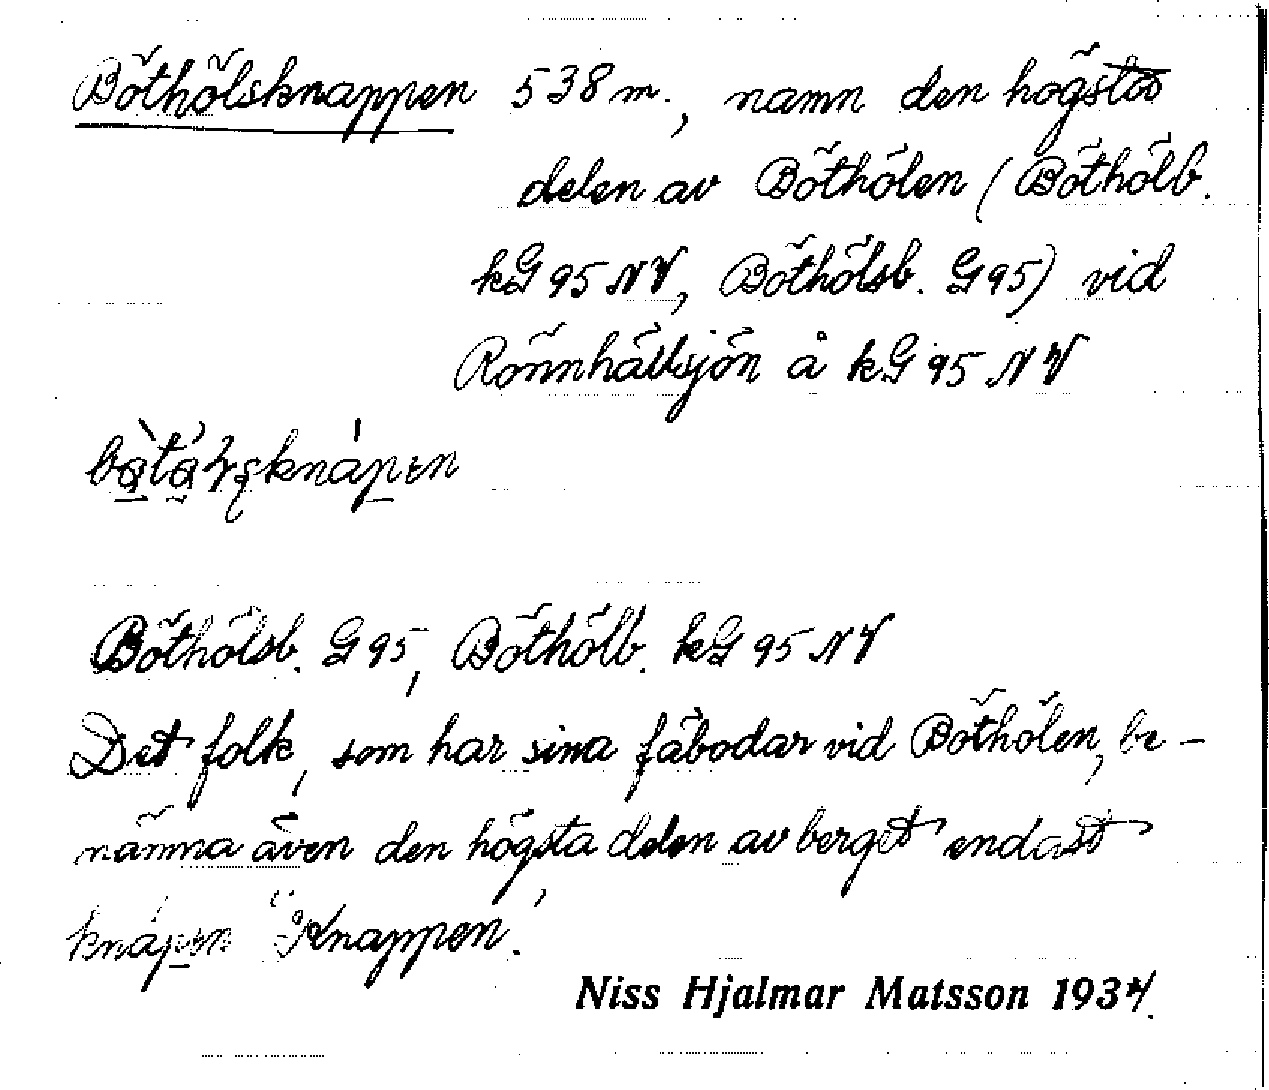 Böthölsknappen 538 m., namn den högsta
delen av Böthölen (Böthölb.
kG 95 NV, Böthölsb. G 95) vid
Rönnhällsjön å kG 95 NV
Böthölsb. G 95, Böthölb. kG 95 NV
Det folk, som har sina fäbodar vid Böthölen, be-
nämna även den högsta delen av berget endast
"Knappen".
Niss Hjalmar Matsson 1934.